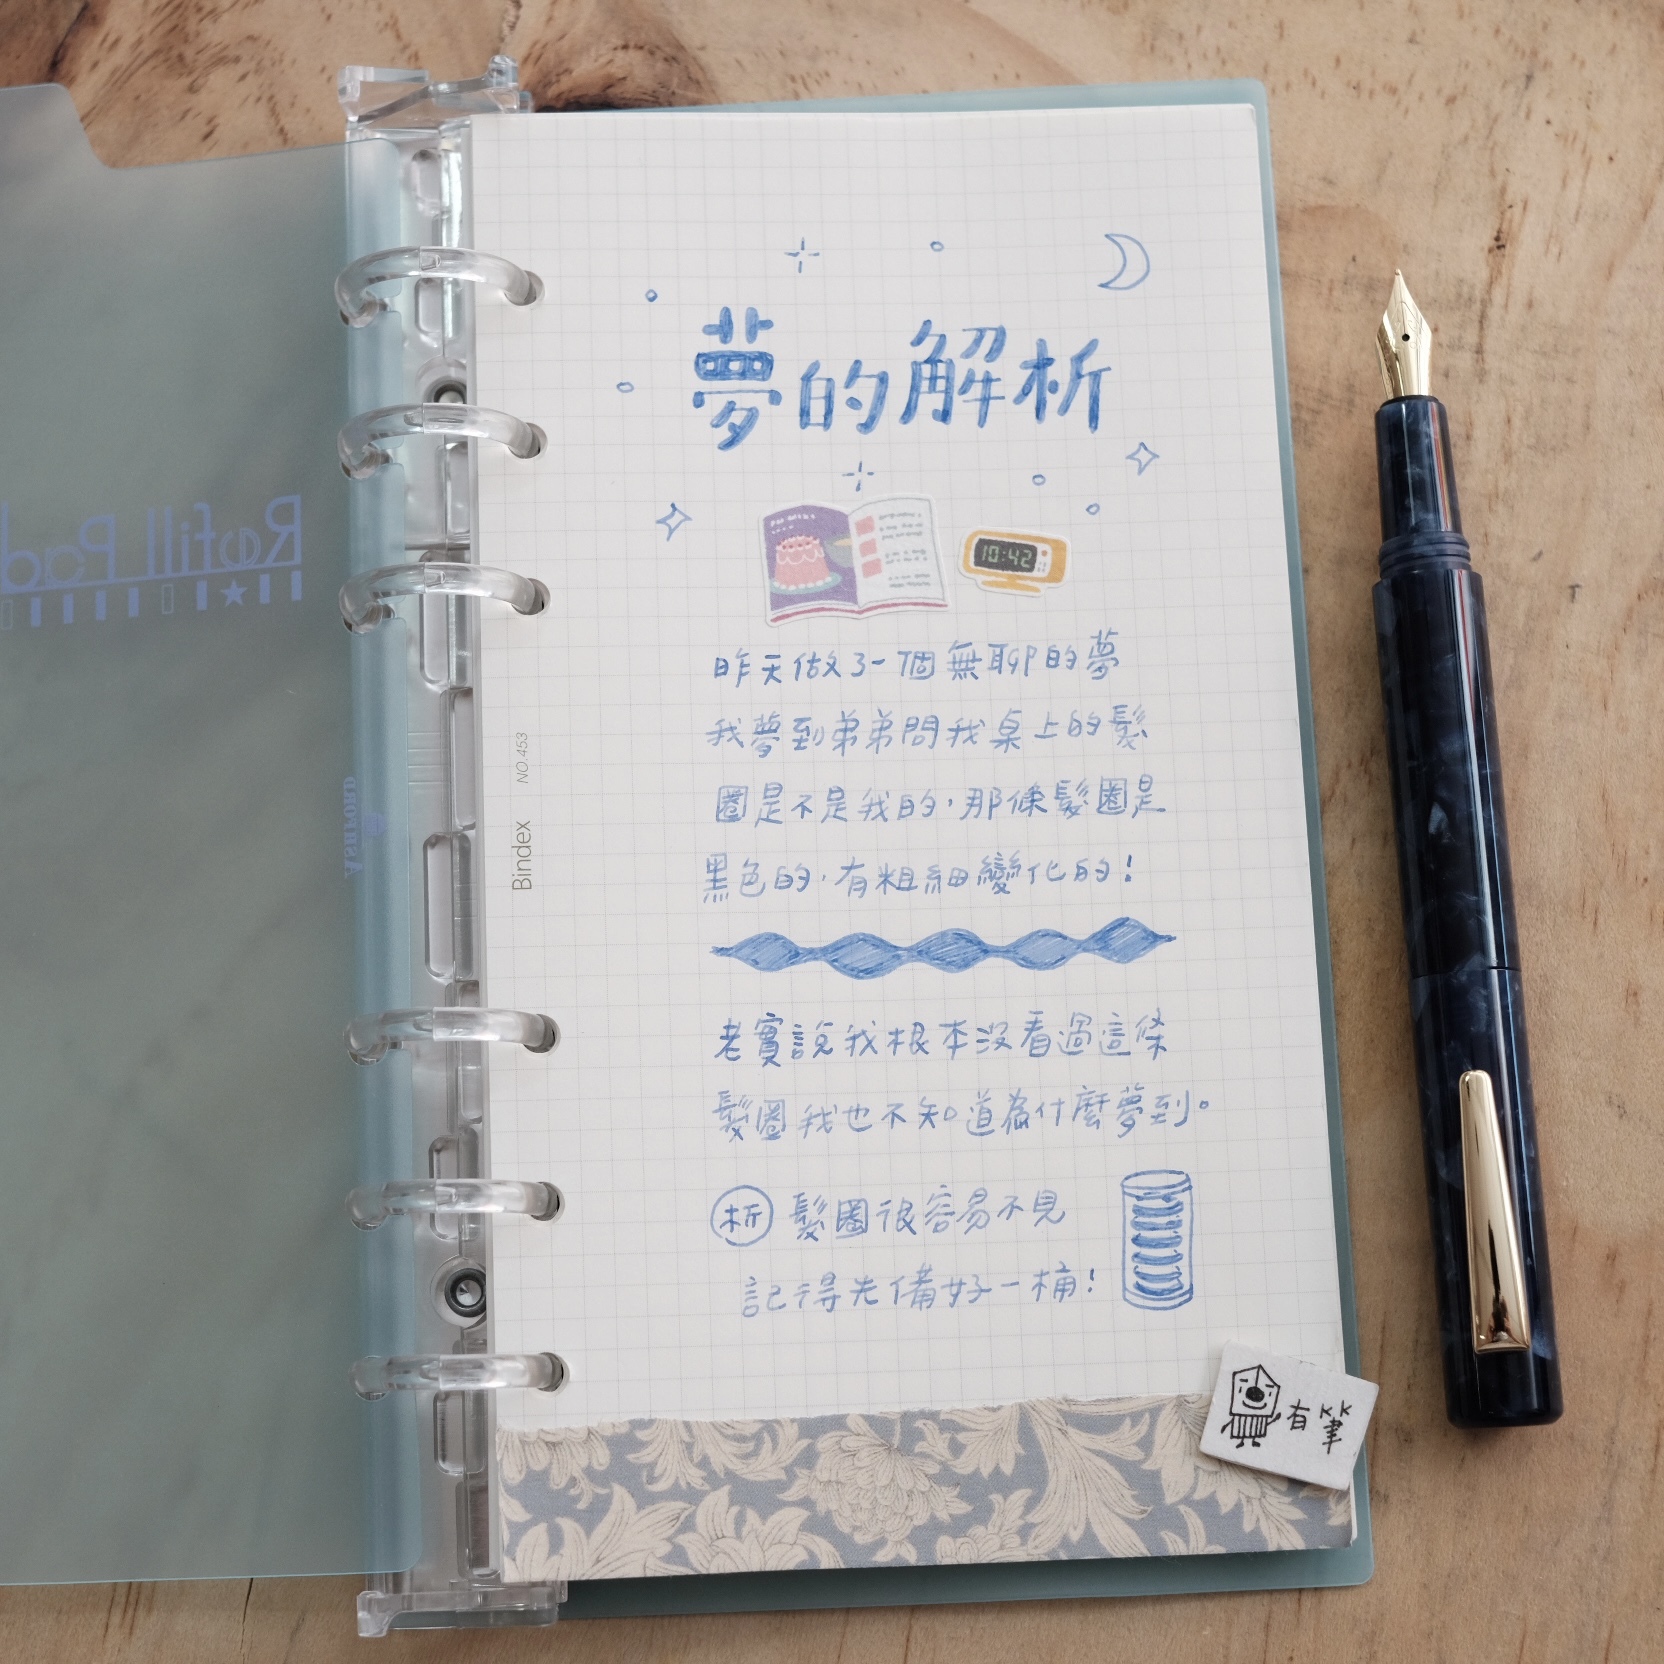 夢的解析
10:42
昨天做了一個無聊的夢
我夢到弟弟問我桌上的髮
圈是不是我的，那條髮圈是
黑色的，有粗細變化的！
老實說我根本沒看過這條
髮圈我也不知道為什麼夢到。
析 髮圈很容易不見
記得先備好一桶！
有筆
Bindex NO.453
Refill Pad
ASHFORD